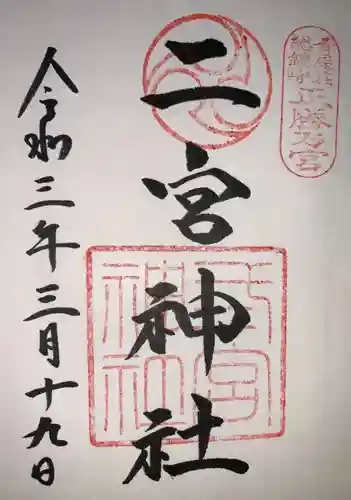 二宮神社
令和三年三月十九日
二宮神社
正勝乃宮